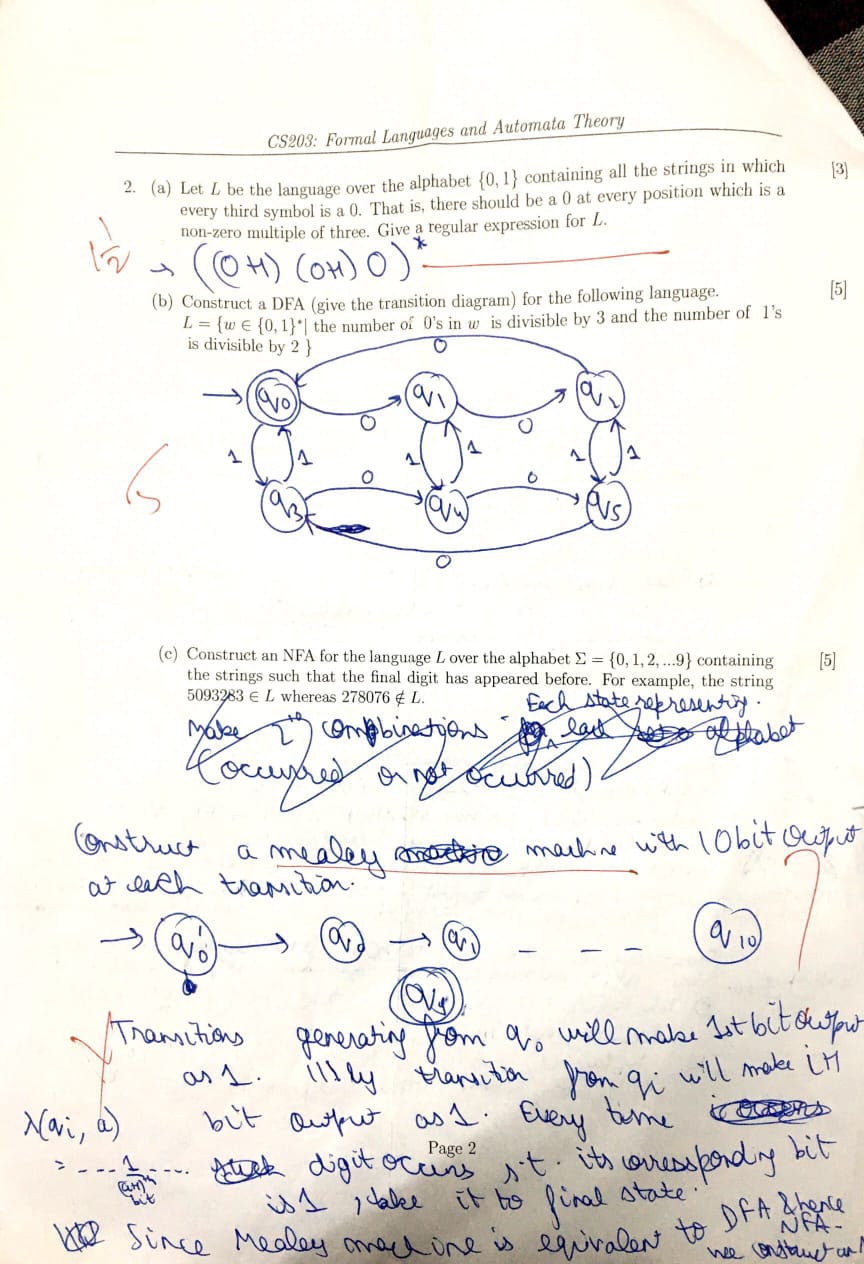 CS203: Formal Languages and Automata Theory
2. (a) Let L be the language over the alphabet {0, 1} containing all the strings in which [3]
every third symbol is a 0. That is, there should be a 0 at every position which is a
non-zero multiple of three. Give a regular expression for L.
1 1/2
→ ((0+1) (0+1) 0)*
(b) Construct a DFA (give the transition diagram) for the following language. [5]
L = {w ∈ {0, 1}*| the number of 0's in w is divisible by 3 and the number of 1's
is divisible by 2 }
0
q0 q1 q2
0 0
1 1 1 1 1 1
0 0
5
q3 q4 q5
0
(c) Construct an NFA for the language L over the alphabet Σ = {0, 1, 2, ...9} containing [5]
the strings such that the final digit has appeared before. For example, the string
5093283 ∈ L whereas 278076 ∉ L.
Each state representing
Make 2^10 combinations last alphabet
(occurred or not occurred)
Construct a mealey machine with 10 bit output
at each transition.
q0' q0 q1 - - - q10
qf
Transitions generating from q0 will make 1st bit output
as 1. lllly transition from qi will make i+1
λ(qi, a) bit output as 1. Every time
Page 2
= - - - 1 - - - digit occurs s.t. its corresponding bit
(i+1)th bit
is 1, take it to final state.
Since Mealey machine is equivalent to DFA & hence
NFA-
we construct an